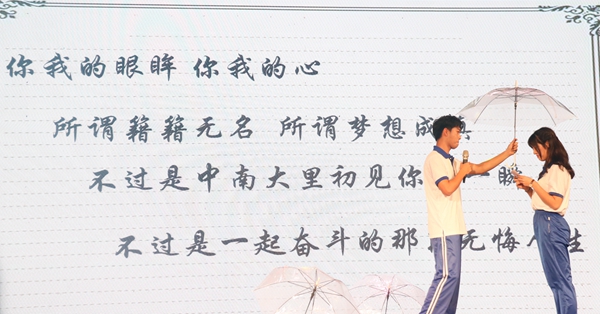 你我的眼眸 你我的心
所谓籍籍无名 所谓梦想成真
不过是中南大里初见你 一瞬
不过是一起奋斗的那 无悔 生